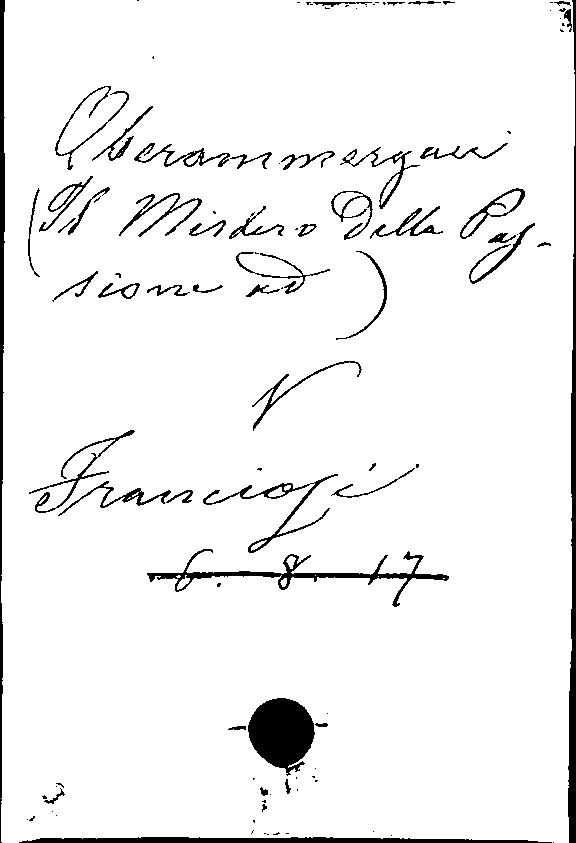 Oberammergau
(Il Mistero Della Pas-
sione ad)
V
Franciosi
6. 8. 17